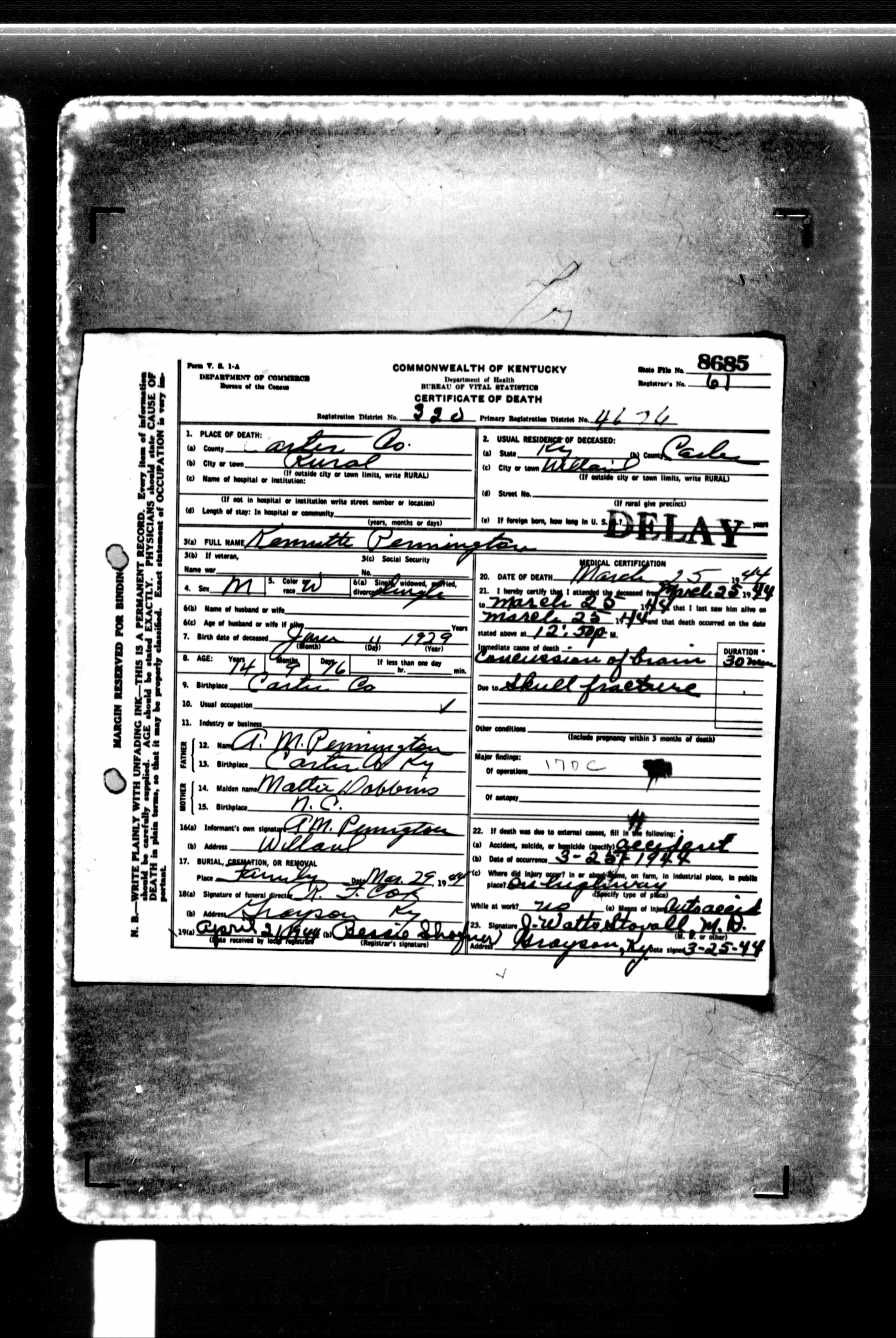 Form V. S. 1-A
DEPARTMENT OF COMMERCE
Bureau of the Census
COMMONWEALTH OF KENTUCKY
Department of Health
BUREAU OF VITAL STATISTICS
CERTIFICATE OF DEATH
State File No. 8685
Registrar's No. 61
Registration District No. 220 Primary Registration District No. 4676
MARGIN RESERVED FOR BINDING
N. B.—WRITE PLAINLY WITH UNFADING INK—THIS IS A PERMANENT RECORD. Every item of information
should be carefully supplied. AGE should be stated EXACTLY. PHYSICIANS should state CAUSE OF
DEATH in plain terms, so that it may be properly classified. Exact statement of OCCUPATION is very im-
portant.
1. PLACE OF DEATH:
(a) County Carter Co.
(b) City or town Rural
(If outside city or town limits, write RURAL)
(c) Name of hospital or institution:
(If not in hospital or institution write street number or location)
(d) Length of stay: In hospital or community
(years, months or days)
2. USUAL RESIDENCE OF DECEASED:
(a) State Ky (b) County Carter
(c) City or town Willard
(If outside city or town limits, write RURAL)
(d) Street No.
(If rural give precinct)
(e) If foreign born, how long in U. S. A.? years
DELAY
3(a) FULL NAME Kennuth Pennington
3(b) If veteran,
Name war
3(c) Social Security
No.
4. Sex M 5. Color or race W 6(a) Single, widowed, married,
divorced Single
6(b) Name of husband or wife
6(c) Age of husband or wife if alive Years
7. Birth date of deceased June 9 1929
(Month) (Day) (Year)
8. AGE: Years Months Days If less than one day
14 9 16 hr. min.
9. Birthplace Carter Co
10. Usual occupation ✓
11. Industry or business
FATHER
12. Name A. M. Pennington
13. Birthplace Carter Co Ky
MOTHER
14. Maiden name Mattie Dobbins
15. Birthplace N. C.
16(a) Informant's own signature A M. Penington
(b) Address Willard
17. BURIAL, CREMATION, OR REMOVAL
Place Family Date Mar. 29, 1944
18(a) Signature of funeral director R. F. Cox
(b) Address Grayson Ky
19(a) April 2, 1944 (b) Bessie
(Date received by local registrar) (Registrar's signature)
MEDICAL CERTIFICATION
20. DATE OF DEATH March 25 1944
21. I hereby certify that I attended the deceased from March 25 1944
to March 25 1944 that I last saw him alive on
March 25 1944 and that death occurred on the date
stated above at 12:50 p M.
Immediate cause of death
Concussion of brain
DURATION
30 min
Due to Skull fracture
Other conditions
(Include pregnancy within 3 months of death)
Major findings:
Of operations 170C
Of autopsy
22. If death was due to external causes, fill in the following:
(a) Accident, suicide, or homicide (specify) accident
(b) Date of occurrence 3-25-1944
(c) Where did injury occur? In or about home, on farm, in industrial place, in public
place? On highway
(Specify type of place)
While at work? no (e) Means of injury Auto accid
23. Signature J. Watts Stovall, M. D.
(M. D. or other)
Address Grayson, Ky Date signed 3-25-44